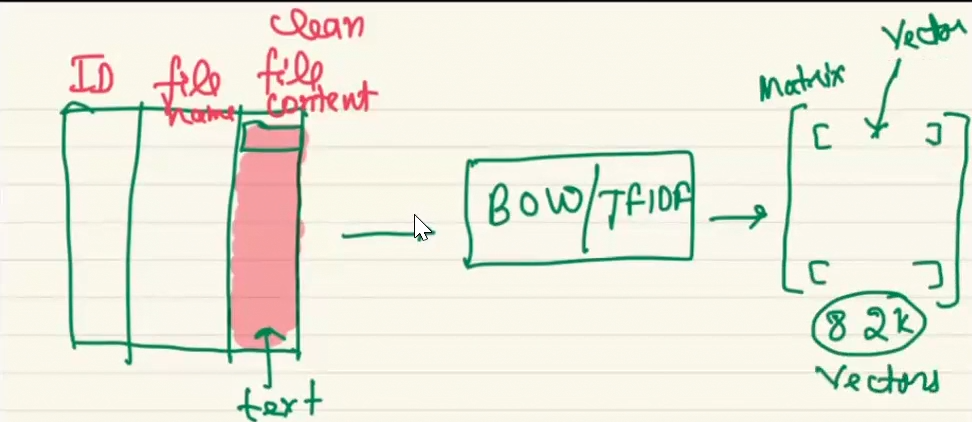 ID
file
name
clean
file
content
text
BOW/TFIDF
Matrix
Vector
[ ]
[ ]
82k
Vectors